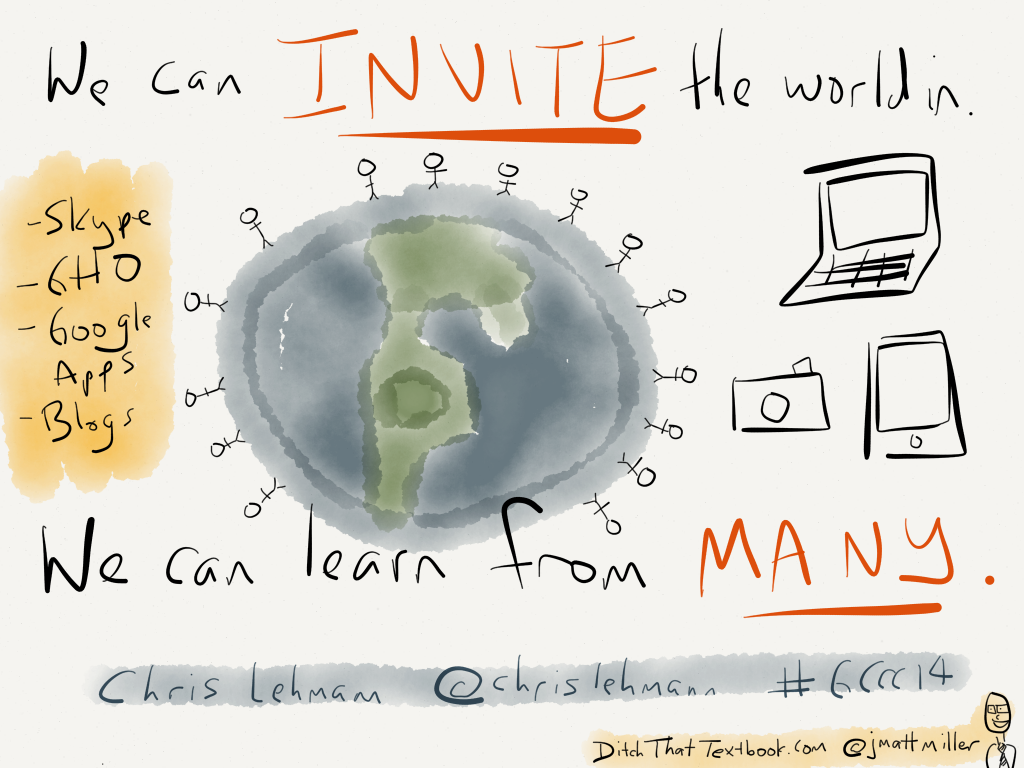 We can INVITE the world in.
- Skype
- GHO
- Google
Apps
- Blogs
We can learn from MANY.
Chris Lehmann @chrislehmann #GCCC14
DitchThatTextbook.com @jmattmiller